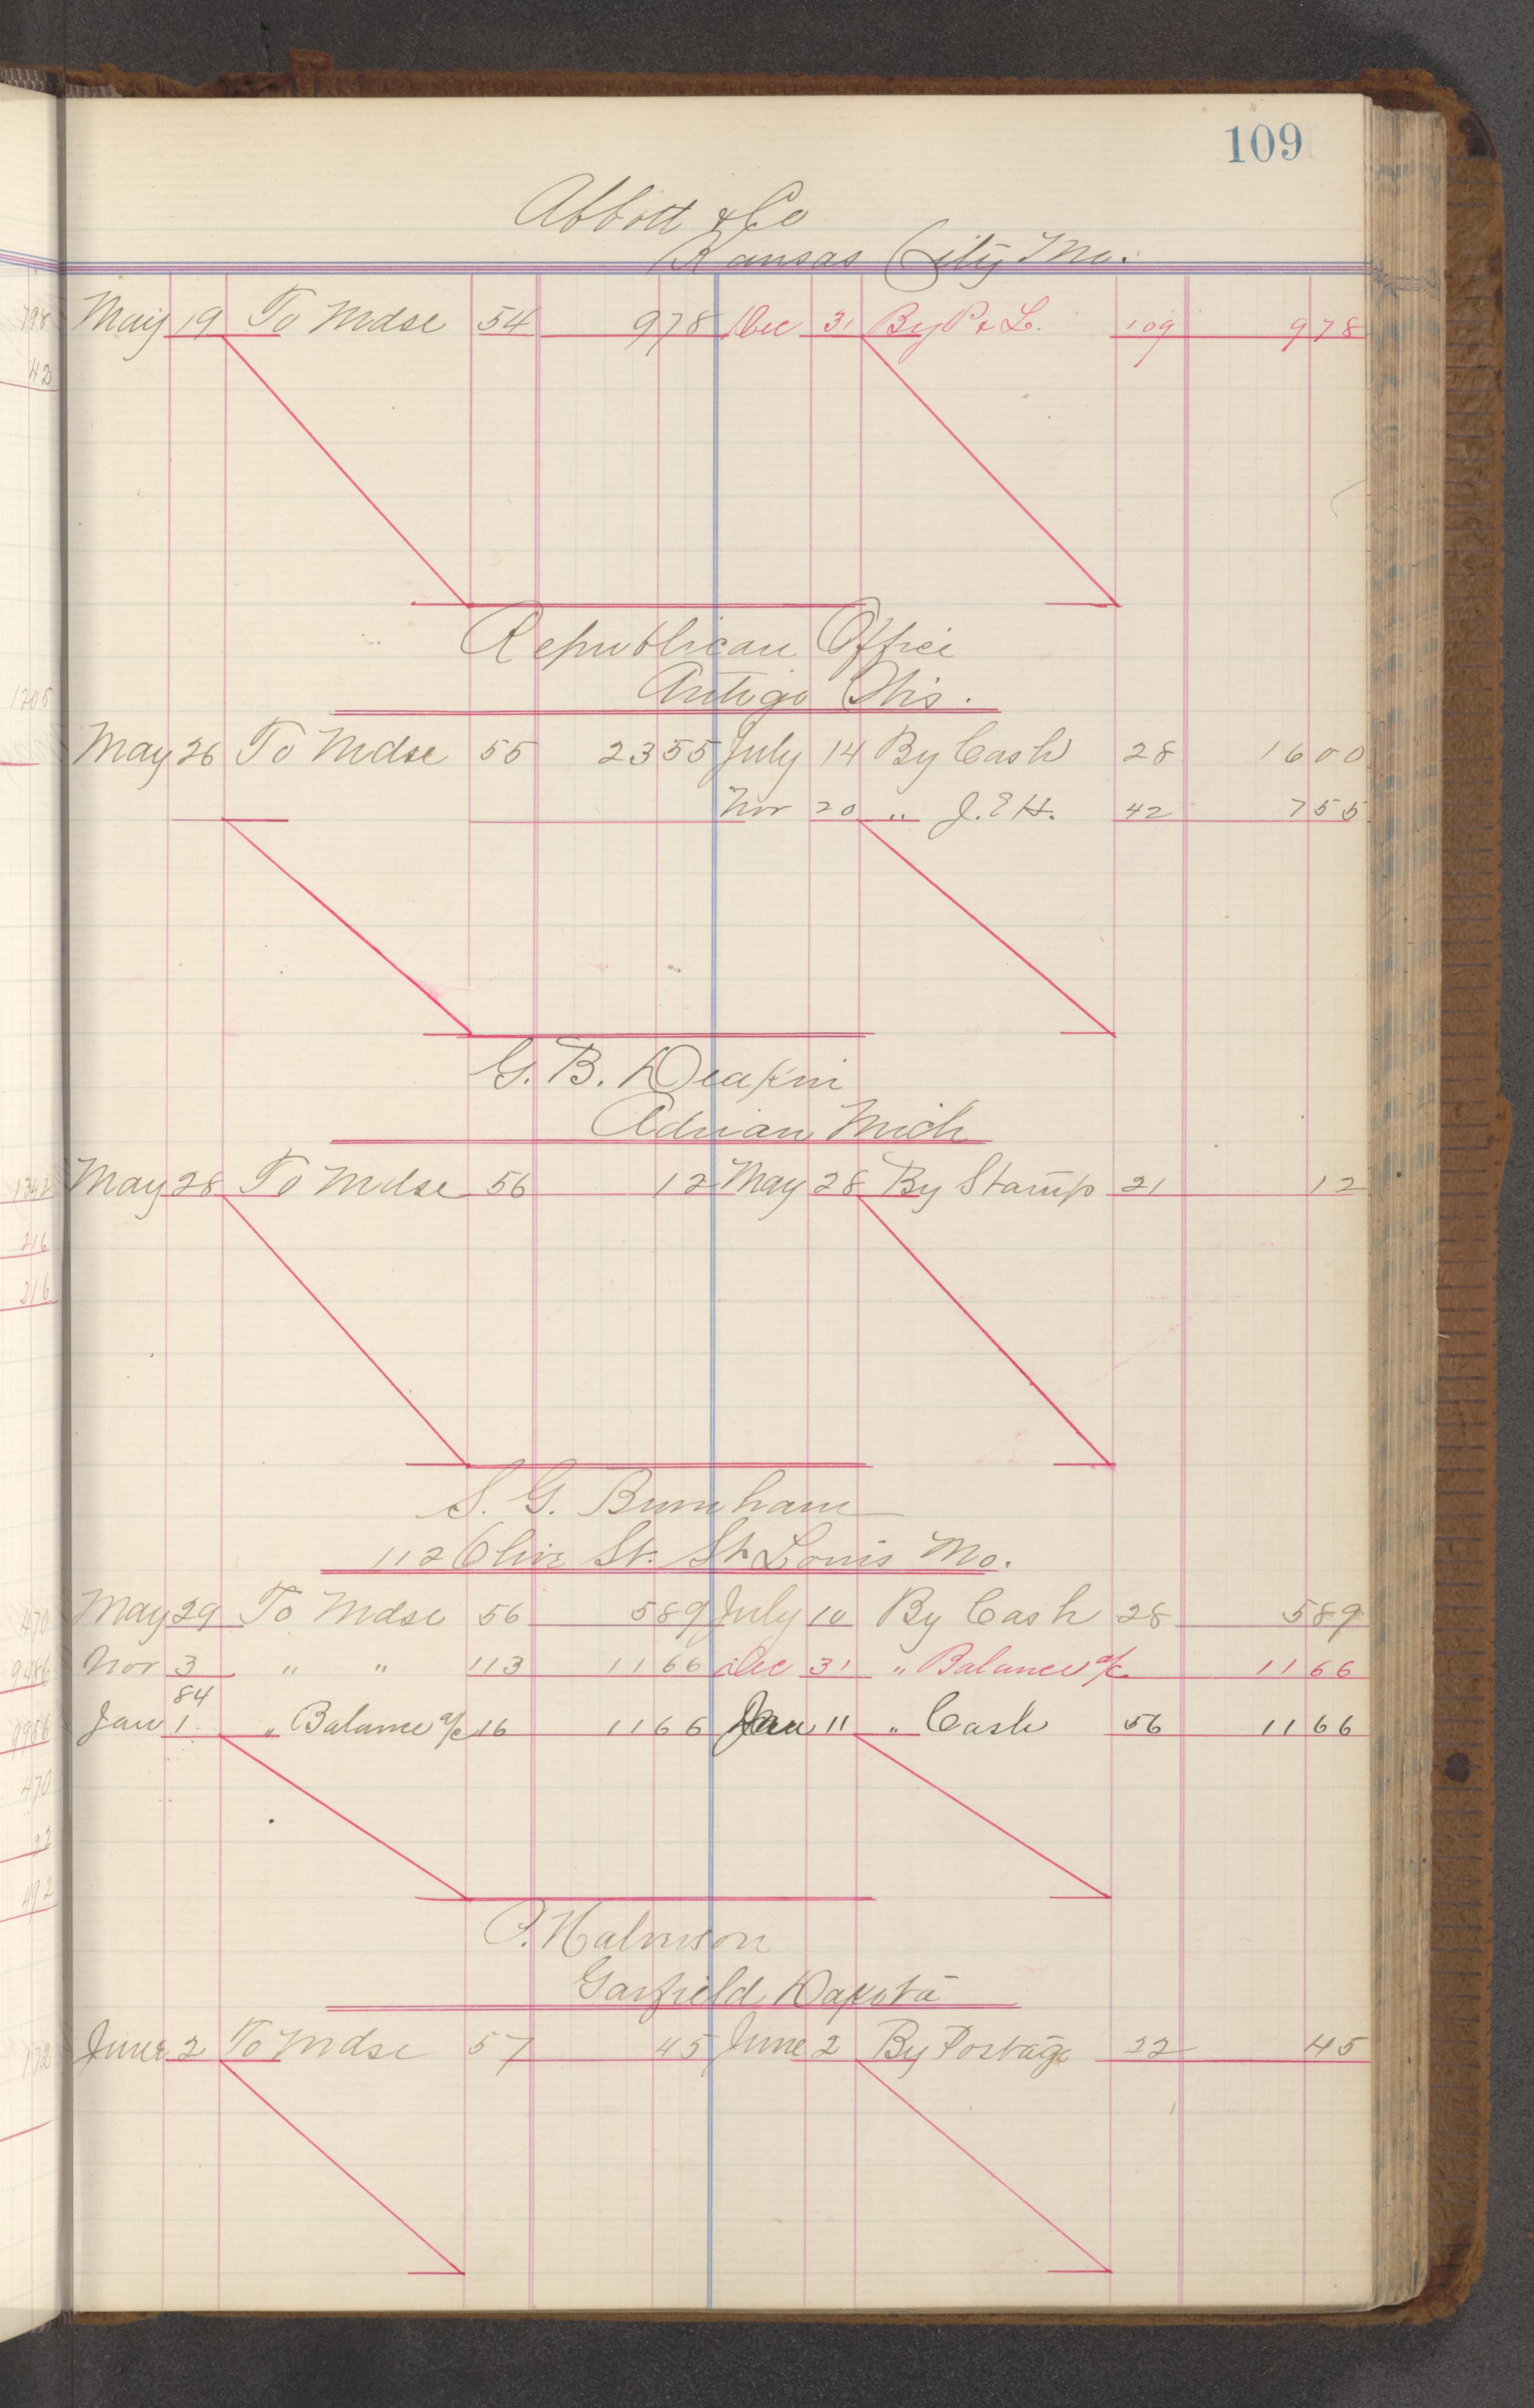 109
Abbott & Co
Kansas City Mo.
May 19 To Mdse 54 9 78 Dec 31 By P & L. 109 9 78
Republican Office
Antigo Wis.
May 26 To Mdse 55 23 55 July 14 By Cash 28 16 00
Nov 20 " J.E.H. 42 7 55
G. B. Deakin
Adrian Mich
May 28 To Mdse 56 12 May 28 By Stamp 21 12
S. G. Burnham
112 Olive St. St Louis Mo.
May 29 To Mdse 56 5 89 July 10 By Cash 28 5 89
Nov 3 " " 113 11 66 Dec 31 " Balance a/c 11 66
84
Jan 1 " Balance a/c 16 11 66 Jan 11 " Cash 56 11 66
Garfield Dakota
June 2 To Mdse 57 45 June 2 By Postage 22 45